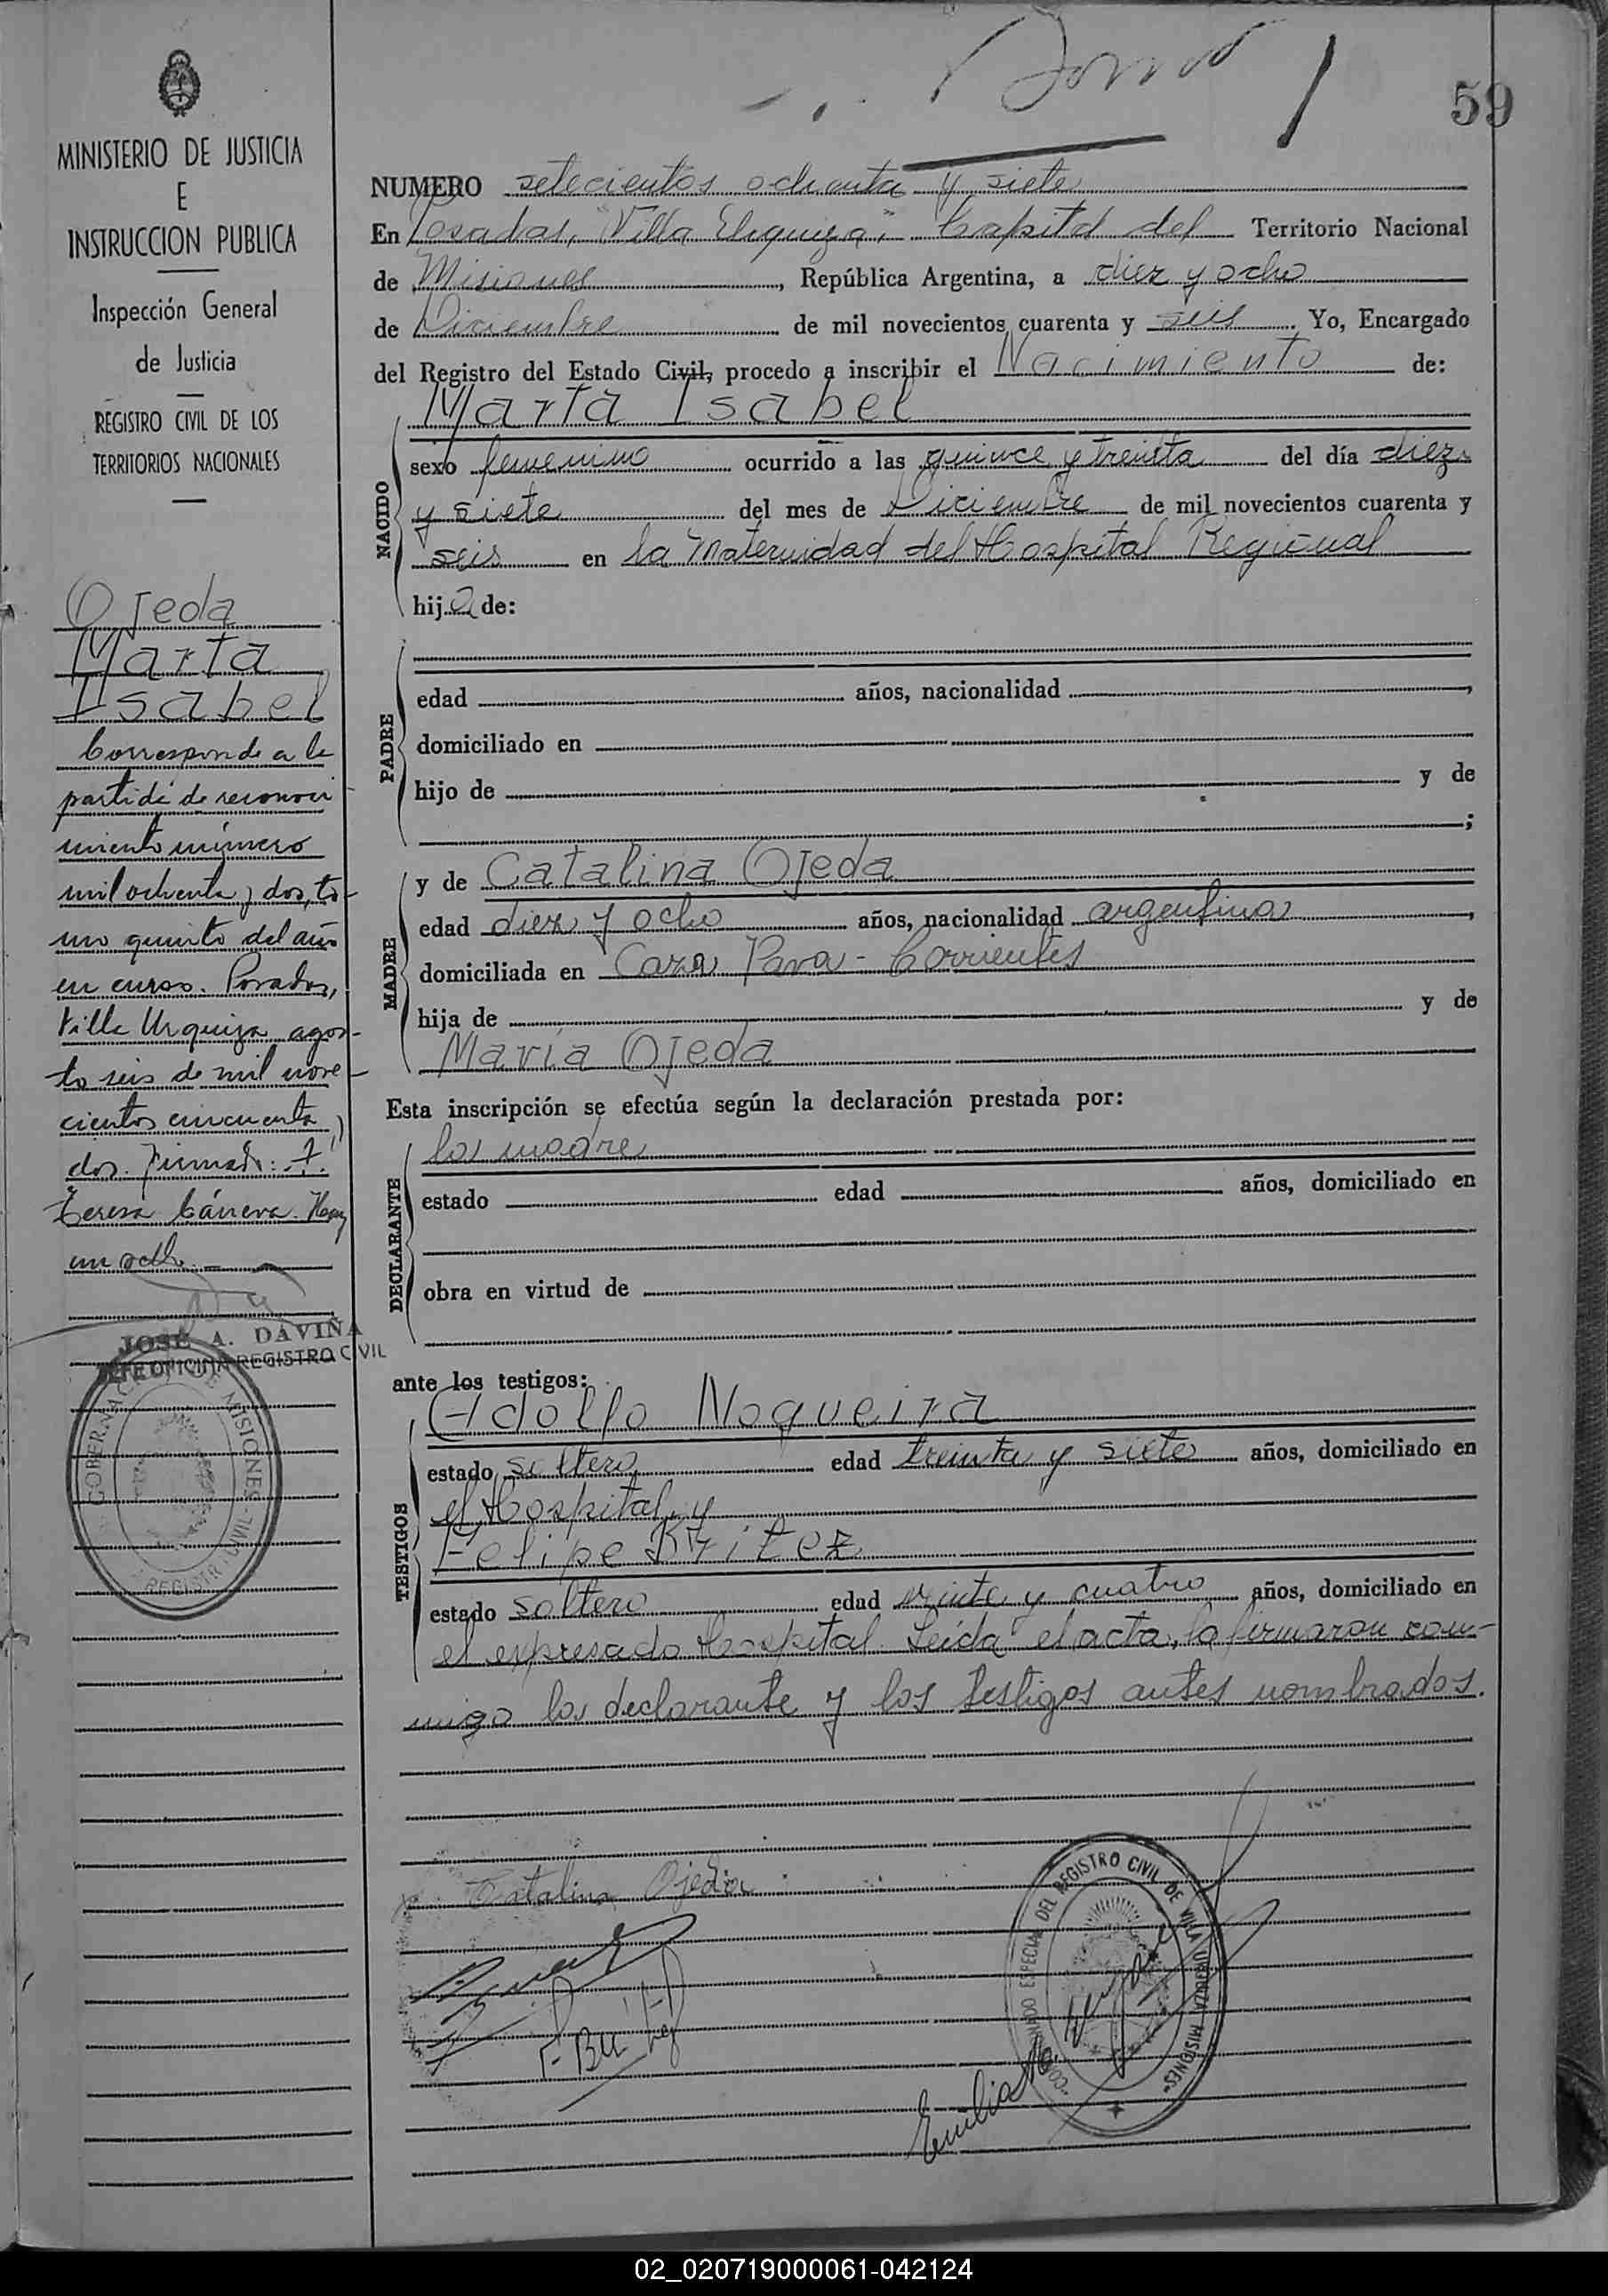 59
MINISTERIO DE JUSTICIA
E
INSTRUCCION PUBLICA
Inspección General
de Justicia
REGISTRO CIVIL DE LOS
TERRITORIOS NACIONALES
Ojeda
Marta
Isabel
Corresponde a la
partida de reconoci
miento número
mil ochenta y dos, to-
mo quinto del año
en curso. Posadas,
Villa Urquiza agos-
to seis de mil nove-
cientos cincuenta y
dos. Firmado:
Teresa Cáneva. Hay
un sello.
JOSÉ A. DAVIÑA
JEFE OFICINA REGISTRO CIVIL
GOBERNACION DE MISIONES
REGISTRO CIVIL
NUMERO setecientos ochenta y siete
En Posadas, "Villa Urquiza", Capital del Territorio Nacional
de Misiones, República Argentina, a diez y ocho
de Diciembre de mil novecientos cuarenta y seis. Yo, Encargado
del Registro del Estado Civil, procedo a inscribir el Nacimiento de:
NACIDO
Marta Isabel
sexo femenino ocurrido a las quince y treinta del día diez
y siete del mes de Diciembre de mil novecientos cuarenta y
seis en la Maternidad del Hospital Regional
hija de:
PADRE
edad años, nacionalidad ,
domiciliado en
hijo de y de
;
MADRE
y de Catalina Ojeda
edad diez y ocho años, nacionalidad argentina,
domiciliada en Caza Pava - Corrientes
hija de y de
María Ojeda
Esta inscripción se efectúa según la declaración prestada por:
DECLARANTE
la madre
estado edad años, domiciliado en
obra en virtud de
ante los testigos:
TESTIGOS
Adolfo Nogueira
estado soltero edad treinta y siete años, domiciliado en
el Hospital, y
Felipe Britez
estado soltero edad veinte y cuatro años, domiciliado en
el expresado Hospital. Leída el acta, la firmaron con-
migo la declarante y los testigos antes nombrados.
Catalina Ojeda
F. Britez
REGISTRO CIVIL DE VILLA URQUIZA MISIONES
02_020719000061-042124